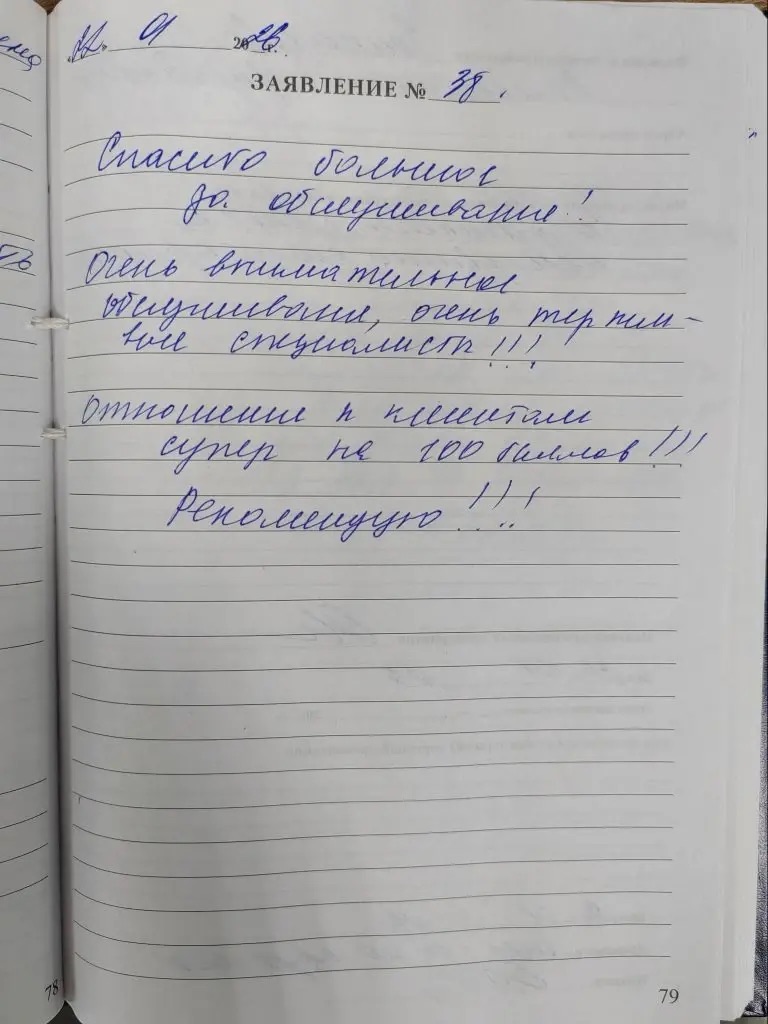 «22» 01 2026 г.
ЗАЯВЛЕНИЕ № 38.
Спасибо большое
за обслуживание!
Очень внимательное
обслуживание, очень терпели-
вые специалисты!!!
Отношение к клиентам
супер на 100 баллов!!!
Рекомендую!!!!
78
79